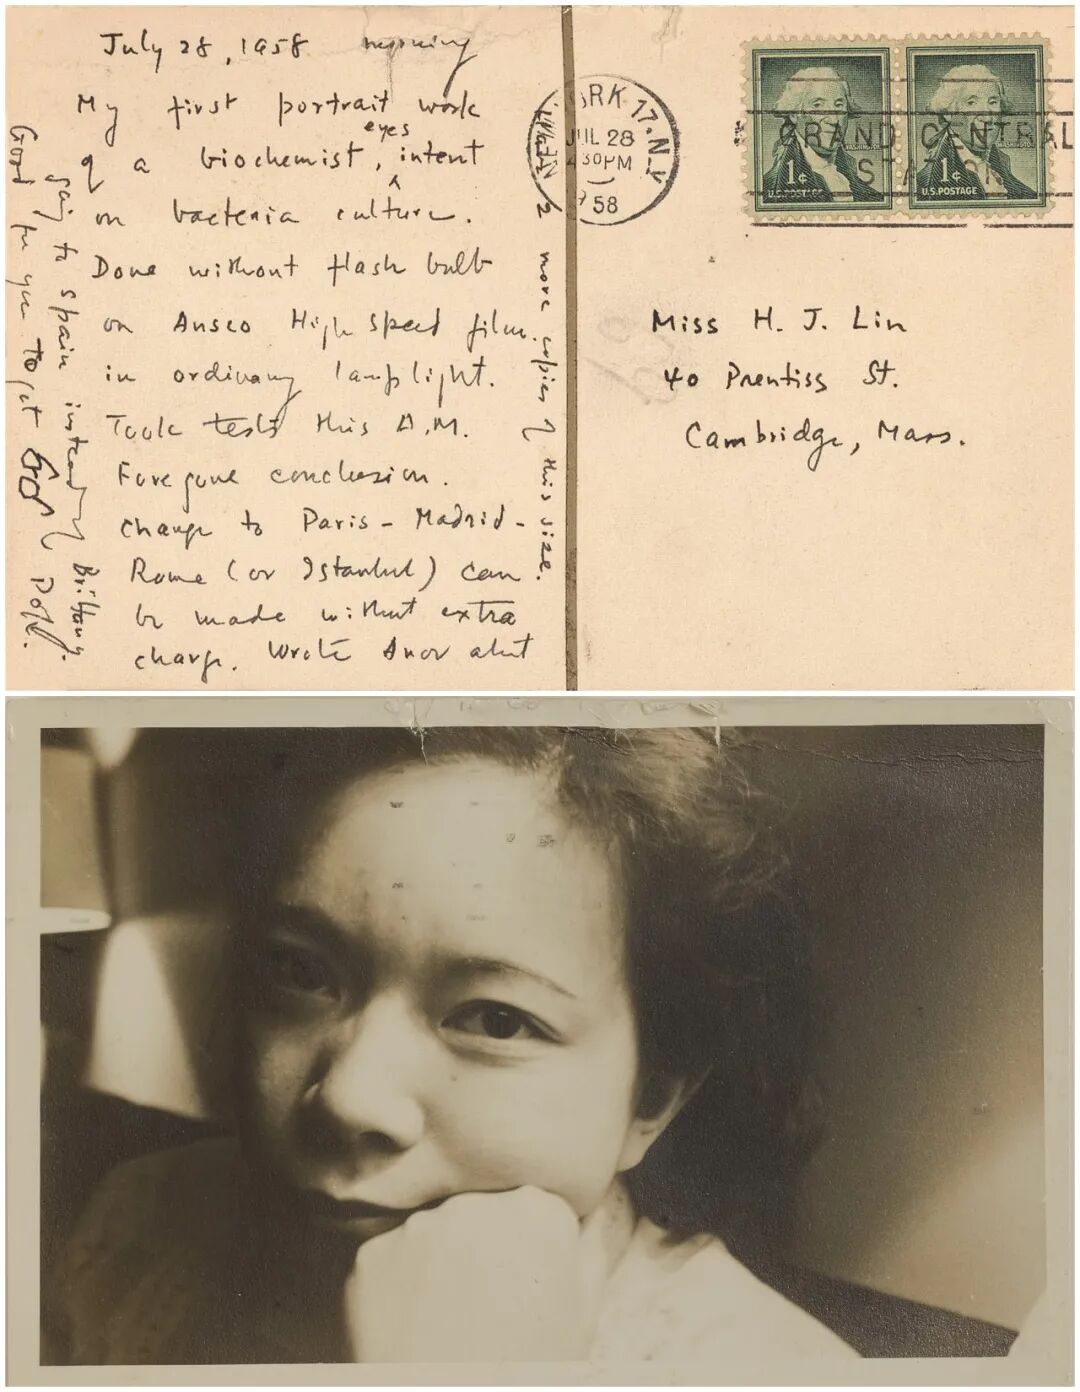 July 28, 1958 morning
My first portrait work
of a biochemist, eyes intent
on bacteria culture.
Done without flash bulb
on Ansco High speed film
in ordinary lamplight.
Took tests this A.M.
Foregone conclusion.
Change to Paris - Madrid -
Rome (or Istanbul) can
be made without extra
charge. Wrote Anor about
going to Spain instead of Brittany.
Good for you to get
Pop.
2 more copies of this size.
YORK 17, N.Y.
JUL 28
4 30 PM
58
GRAND CENTRAL
STATION
1¢
WASHINGTON
U.S. POSTAGE
1¢
WASHINGTON
U.S. POSTAGE
Miss H. J. Lin
40 Prentiss St.
Cambridge, Mass.